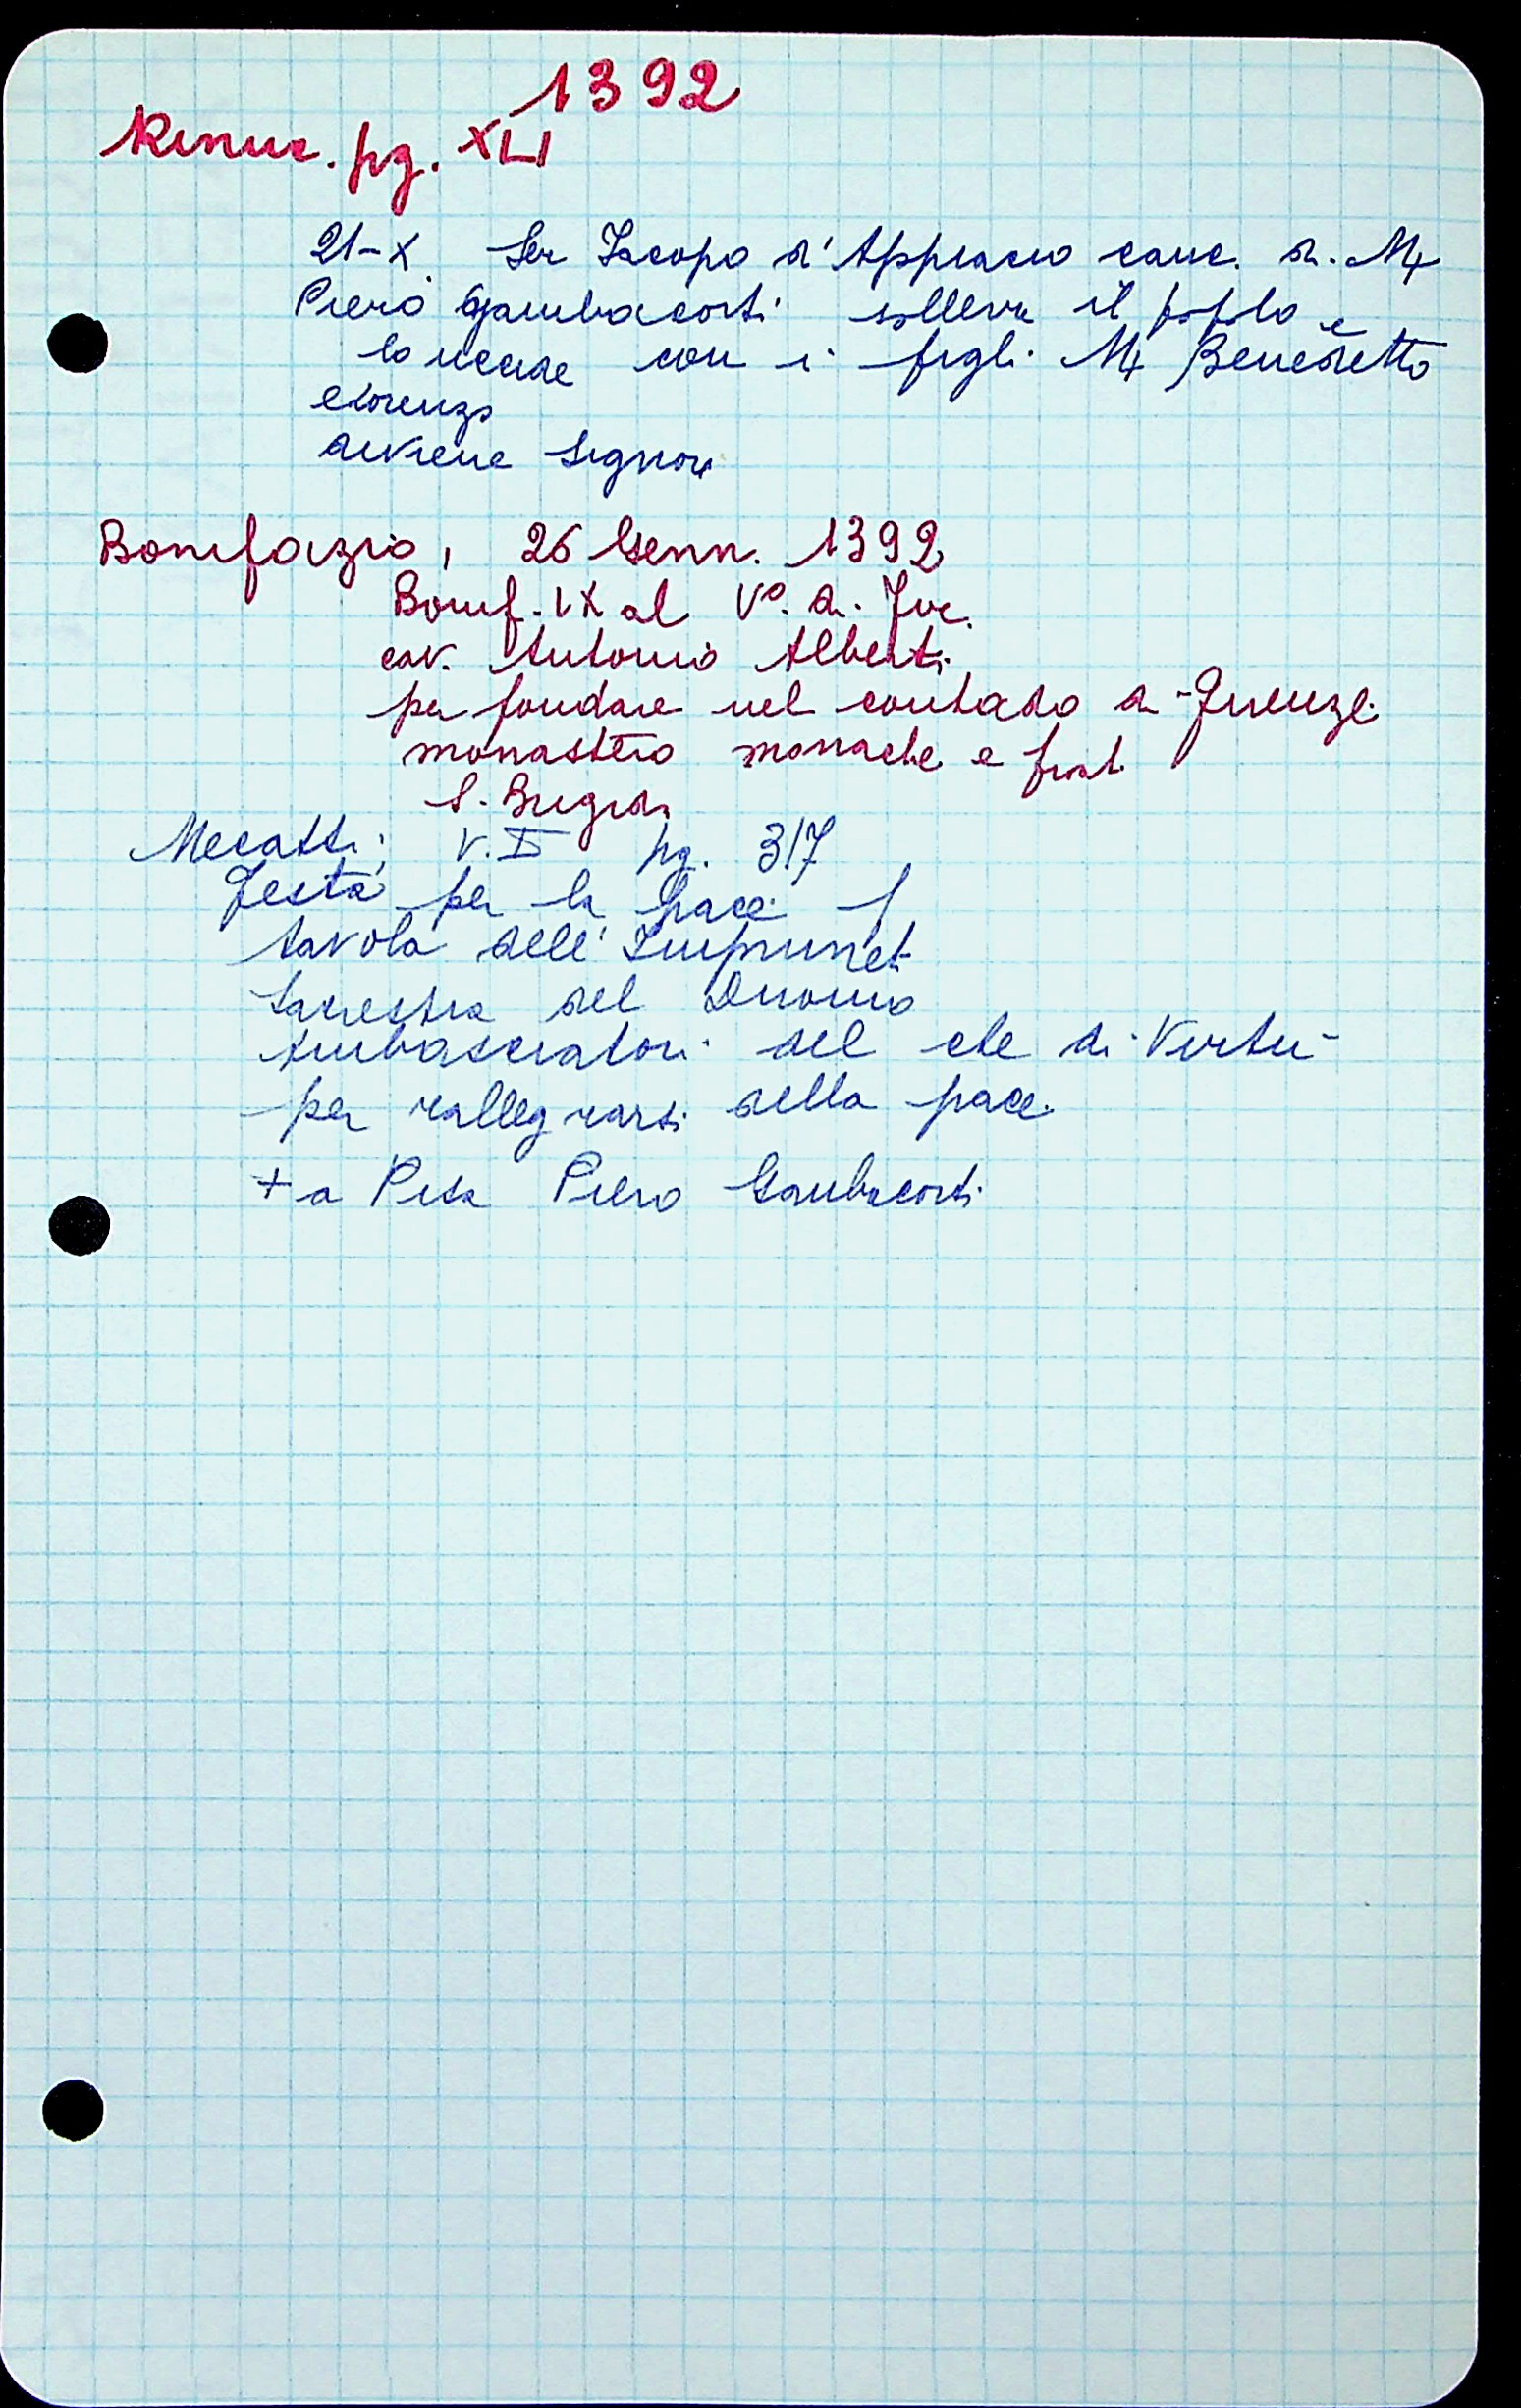 1392
Rinuc. pg. XLI
21-X. Ser Iacopo d'Appiano canc. di Mr
Piero Gambacorti solleva il popolo e
lo uccide con i figli Mr Benedetto
e Lorenzo
diviene Signore
Bonifazio, 26 Genn. 1392
Bonif. IX al Vo. di
cav. Antonio Alberti
per fondare nel contado di Firenze
monastero monache e frati
S. Brigida
Mecatti; V. I pg. 317
Festa per la pace
tavola dell'Imprunet
Sacrestia del Duomo
Ambasciatori del cte di Virtù
per rallegrarsi della pace
+ a Pisa Piero Gambacorti